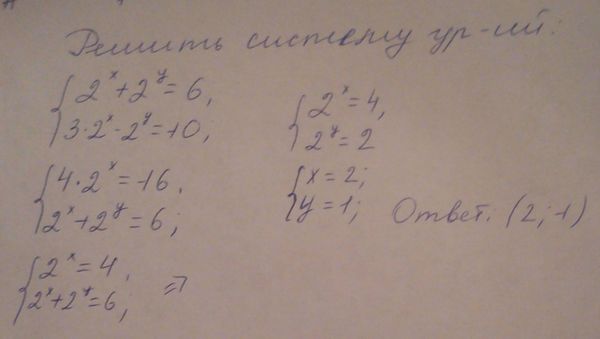 Решить систему ур-ий:
2ˣ+2ʸ=6,
3·2ˣ-2ʸ=10,
4·2ˣ=16,
2ˣ+2ʸ=6;
2ˣ=4,
2ˣ+2ʸ=6; ⇒
2ˣ=4,
2ʸ=2
x=2;
y=1; Ответ: (2;1)